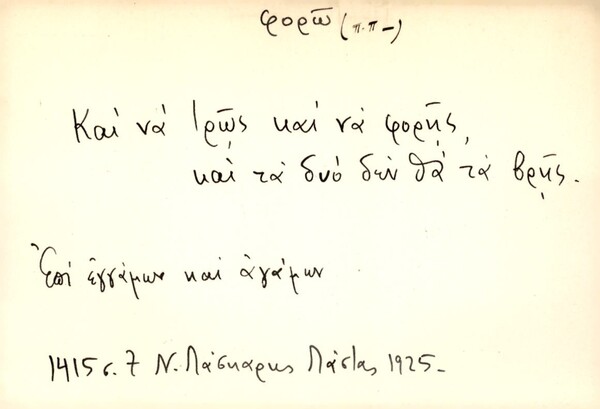 φορῶ (π.π-)
Καὶ νὰ ἰρῶς καὶ νὰ φορῇς,
καὶ τὰ δυό δὲν θὰ τὰ βρῇς.
Ἐπί ἐγγάμων καὶ ἀγάμων
1415 σ. 7 Ν. Πάσχαρης Λάστας 1925.